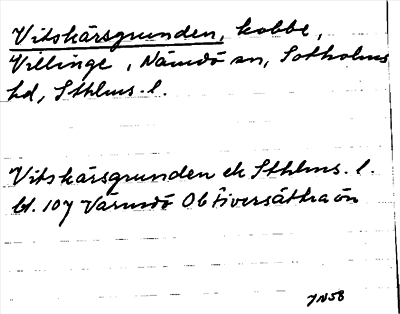 Vitskärsgrunden, kobbe,
Villinge, Nämdö sn, Sotholms
hd, Sthlms. l.
Vitskärsgrunden ek Sthlms. l.
bl. 107 Värmdö Ob
JN58